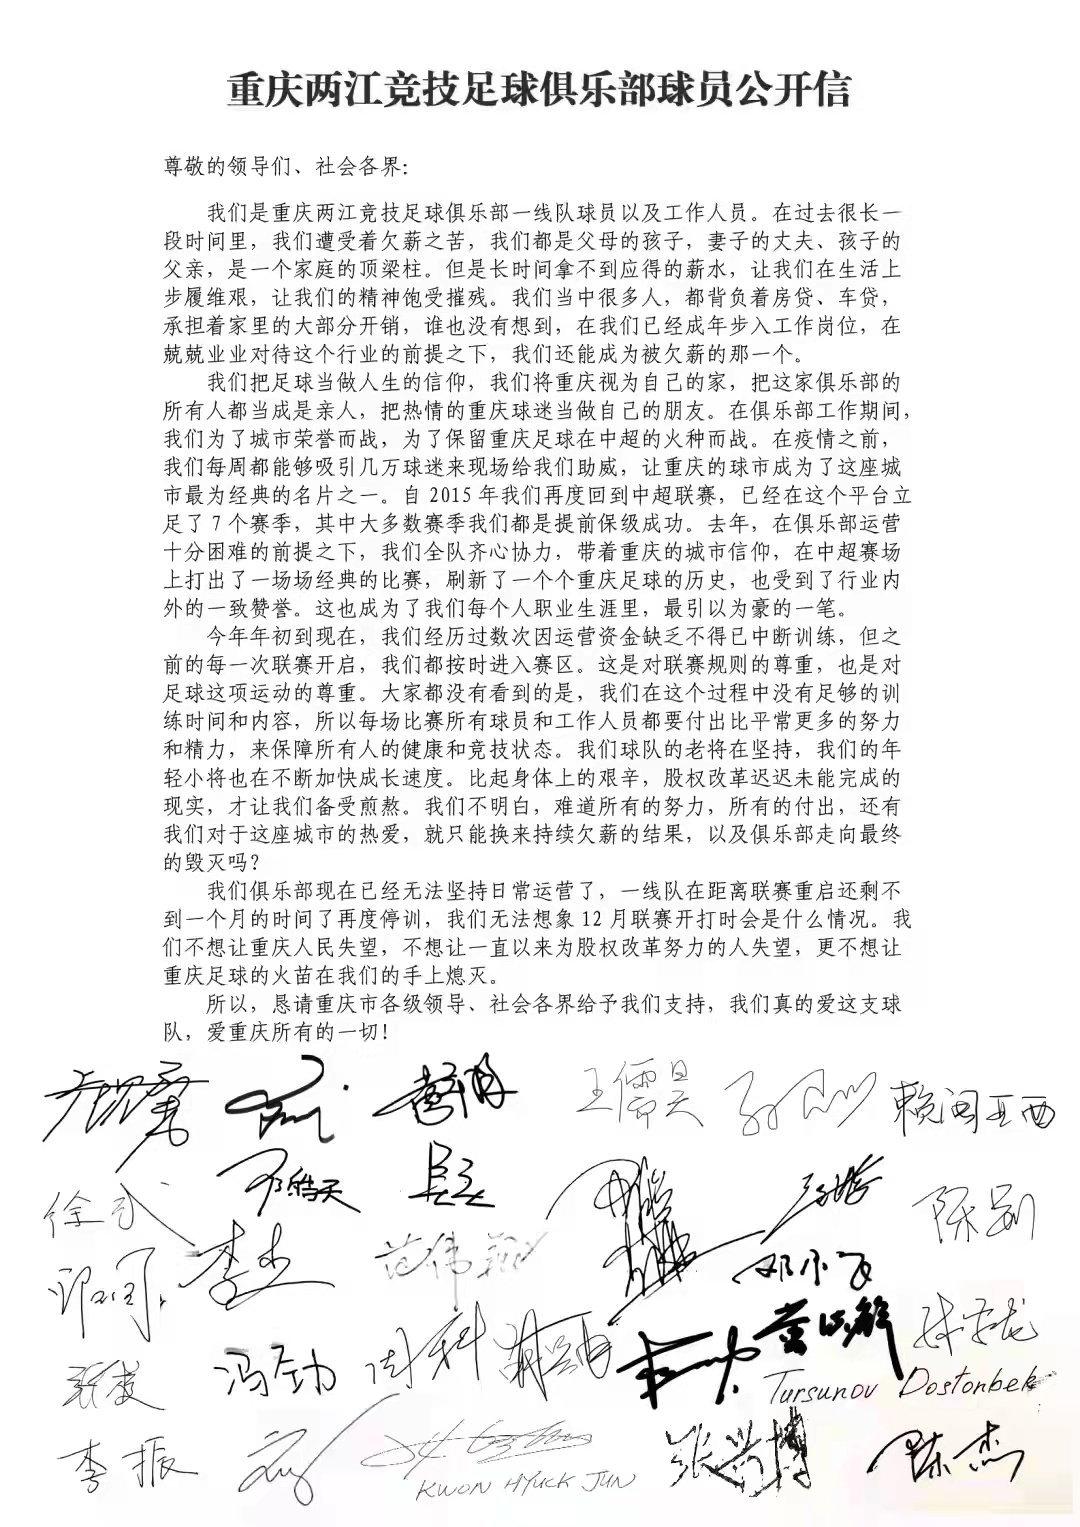 重庆两江竞技足球俱乐部球员公开信
尊敬的领导们、社会各界：
我们是重庆两江竞技足球俱乐部一线队球员以及工作人员。在过去很长一
段时间里，我们遭受着欠薪之苦，我们都是父母的孩子，妻子的丈夫、孩子的
父亲，是一个家庭的顶梁柱。但是长时间拿不到应得的薪水，让我们在生活上
步履维艰，让我们的精神饱受摧残。我们当中很多人，都背负着房贷、车贷，
承担着家里的大部分开销，谁也没有想到，在我们已经成年步入工作岗位，在
兢兢业业对待这个行业的前提之下，我们还能成为被欠薪的那一个。
我们把足球当做人生的信仰，我们将重庆视为自己的家，把这家俱乐部的
所有人都当成是亲人，把热情的重庆球迷当做自己的朋友。在俱乐部工作期间，
我们为了城市荣誉而战，为了保留重庆足球在中超的火种而战。在疫情之前，
我们每周都能够吸引几万球迷来现场给我们助威，让重庆的球市成为了这座城
市最为经典的名片之一。自 2015 年我们再度回到中超联赛，已经在这个平台立
足了 7 个赛季，其中大多数赛季我们都是提前保级成功。去年，在俱乐部运营
十分困难的前提之下，我们全队齐心协力，带着重庆的城市信仰，在中超赛场
上打出了一场场经典的比赛，刷新了一个个重庆足球的历史，也受到了行业内
外的一致赞誉。这也成为了我们每个人职业生涯里，最引以为豪的一笔。
今年年初到现在，我们经历过数次因运营资金缺乏不得已中断训练，但之
前的每一次联赛开启，我们都按时进入赛区。这是对联赛规则的尊重，也是对
足球这项运动的尊重。大家都没有看到的是，我们在这个过程中没有足够的训
练时间和内容，所以每场比赛所有球员和工作人员都要付出比平常更多的努力
和精力，来保障所有人的健康和竞技状态。我们球队的老将在坚持，我们的年
轻小将也在不断加快成长速度。比起身体上的艰辛，股权改革迟迟未能完成的
现实，才让我们备受煎熬。我们不明白，难道所有的努力，所有的付出，还有
我们对于这座城市的热爱，就只能换来持续欠薪的结果，以及俱乐部走向最终
的毁灭吗？
我们俱乐部现在已经无法坚持日常运营了，一线队在距离联赛重启还剩不
到一个月的时间了再度停训，我们无法想象 12 月联赛开打时会是什么情况。我
们不想让重庆人民失望，不想让一直以来为股权改革努力的人失望，更不想让
重庆足球的火苗在我们的手上熄灭。
所以，恳请重庆市各级领导、社会各界给予我们支持，我们真的爱这支球
队，爱重庆所有的一切！
王儒昊 赖润亚西
邓皓天
李杰 范伟 邓小飞
冯劲 周科
Tursunov Dostonbek
李振 KWON HYUCK JUN 张兴博 陈杰